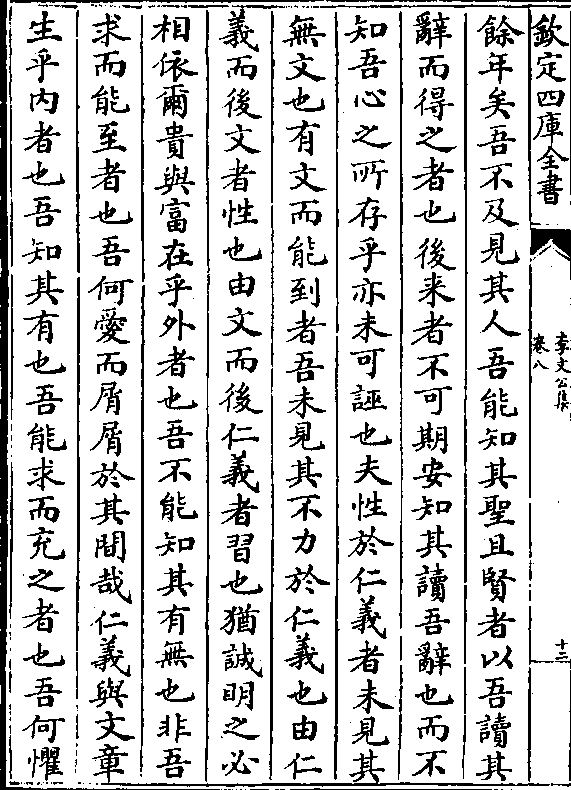 欽定四庫全書
李文公集
卷八
十三
餘年矣吾不及見其人吾能知其聖且賢者以吾讀其
辭而得之者也後来者不可期安知其讀吾辭也而不
知吾心之所存乎亦未可誣也夫性於仁義者未見其
無文也有文而能到者吾未見其不力於仁義也由仁
義而後文者性也由文而後仁義者習也猶誠明之必
相依爾貴與富在乎外者也吾不能知其有無也非吾
求而能至者也吾何愛而屑屑於其間哉仁義與文章
生乎内者也吾知其有也吾能求而充之者也吾何懼